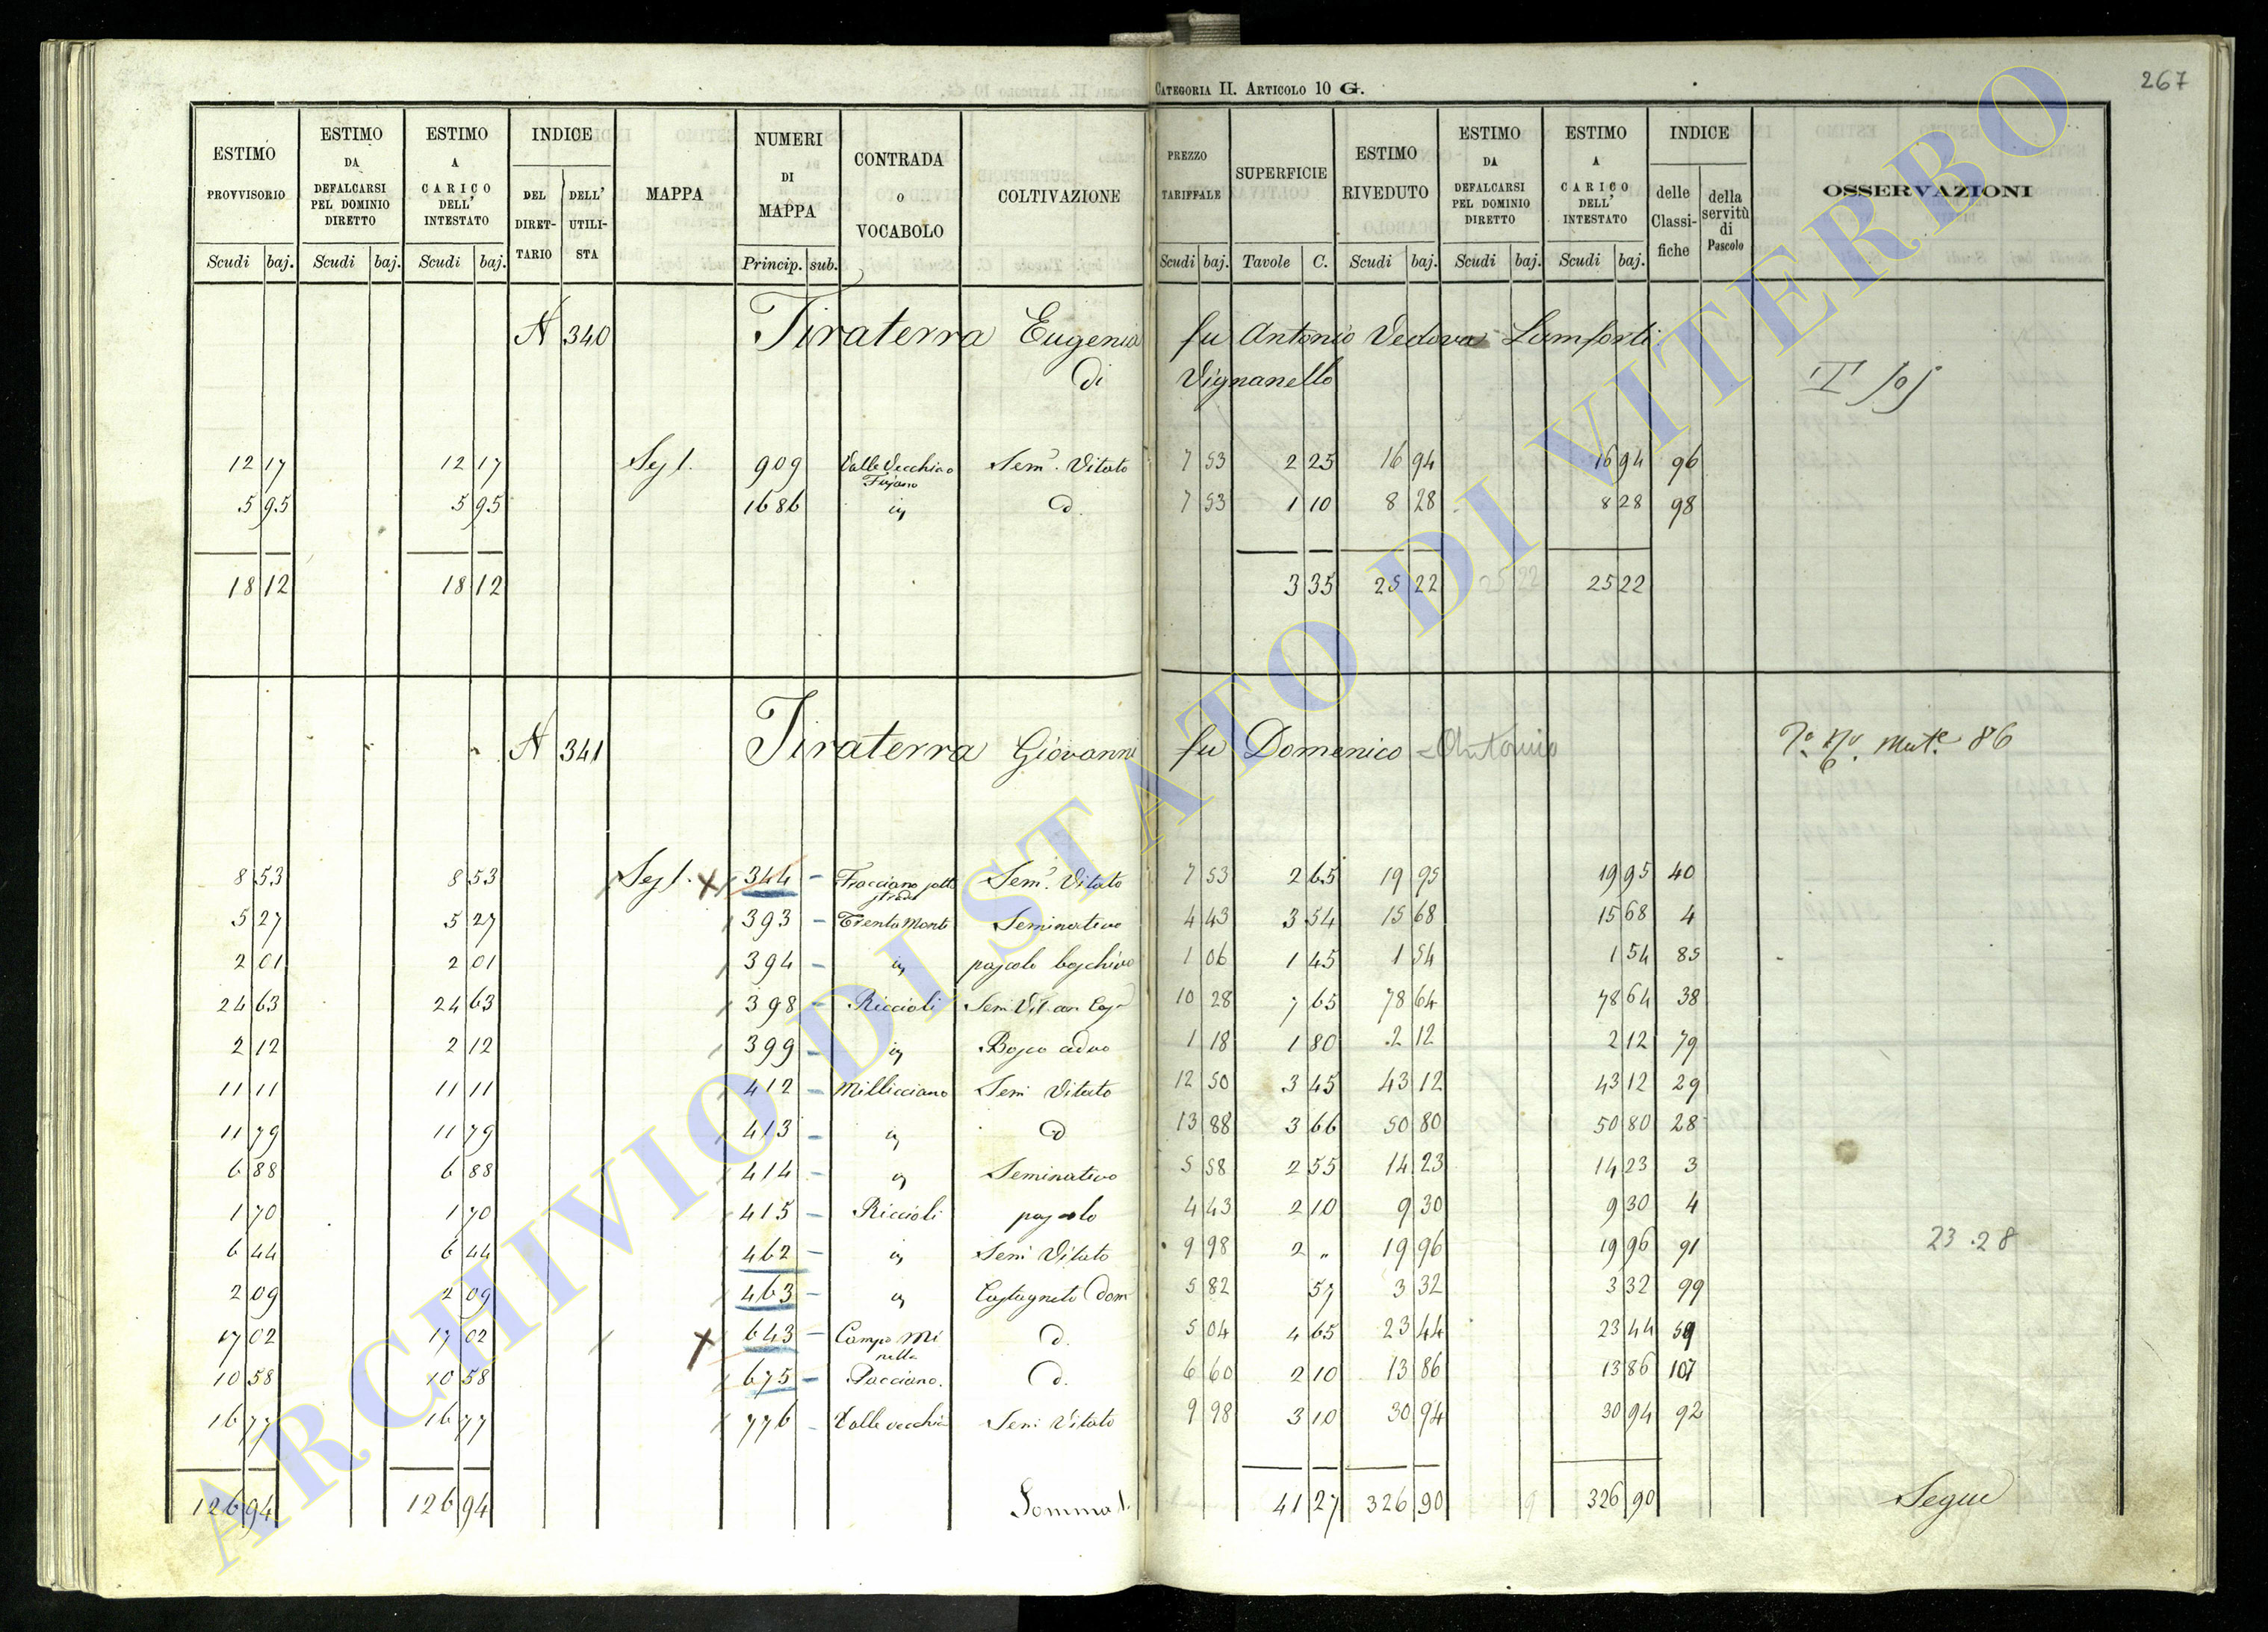 CATEGORIA II. ARTICOLO 10 G.
267
ESTIMO PROVVISORIO Scudi baj.
ESTIMO DA DEFALCARSI PEL DOMINIO DIRETTO Scudi baj.
ESTIMO A CARICO DELL' INTESTATO Scudi baj.
INDICE DEL DIRET-TARIO DELL' UTILI-STA
MAPPA
NUMERI DI MAPPA Princip. sub.
CONTRADA o VOCABOLO
COLTIVAZIONE
PREZZO TARIFFALE Scudi baj.
SUPERFICIE Tavole C.
ESTIMO RIVEDUTO Scudi baj.
ESTIMO DA DEFALCARSI PEL DOMINIO DIRETTO Scudi baj.
ESTIMO A CARICO DELL' INTESTATO Scudi baj.
INDICE delle Classi-fiche della servitù di Pascolo
OSSERVAZIONI
N 340 Tiraterra Eugenia fu Antonio Vedova Lamforti
di Vignanello
12 17 12 17 Sez 1. 909 Valle Vecchia o Fajano Sem.o Vitato 7 53 2 25 16 94 16 94 96
5 95 5 95 1686 id. d. 7 53 1 10 8 28 8 28 98
18 12 18 12 3 35 25 22 25 22 25 22
N 341 Tiraterra Giovanni fu Domenico = Antonio 86
8 53 8 53 Sez 1. X 344 Fracciano sotto strada Sem.o Vitato 7 53 2 65 19 95 19 95 40
5 27 5 27 393 Trenta Monti Seminativo 4 43 3 54 15 68 15 68 4
2 01 2 01 394 id. pascolo boschivo 1 06 1 45 1 54 1 54 85
24 63 24 63 398 Riccioli Sem Vit. con Cas 10 28 7 65 78 64 78 64 38
2 12 2 12 399 id. Bosco ceduo 1 18 1 80 2 12 2 12 79
11 11 11 11 412 Millicciano Sem Vitato 12 50 3 45 43 12 43 12 29
11 79 11 79 413 id. d 13 88 3 66 50 80 50 80 28
6 88 6 88 414 id. Seminativo 5 58 2 55 14 23 14 23 3
1 70 1 70 415 Riccioli pascolo 4 43 2 10 9 30 9 30 4
6 44 6 44 462 id. Sem Vitato 9 98 2 " 19 96 19 96 91 23.28
2 09 2 09 463 id. Castagneto dom 5 82 57 3 32 3 32 99
17 02 17 02 X 643 Campo Minella d. 5 04 4 65 23 44 23 44 59
10 58 10 58 675 Pacciano. d. 6 60 2 10 13 86 13 86 107
16 77 16 77 776 Valle vecchia Sem Vitato 9 98 3 10 30 94 30 94 92
126 94 126 94 Somma 1. 41 27 326 90 326 90 Segue
ARCHIVIO DI STATO DI VITERBO